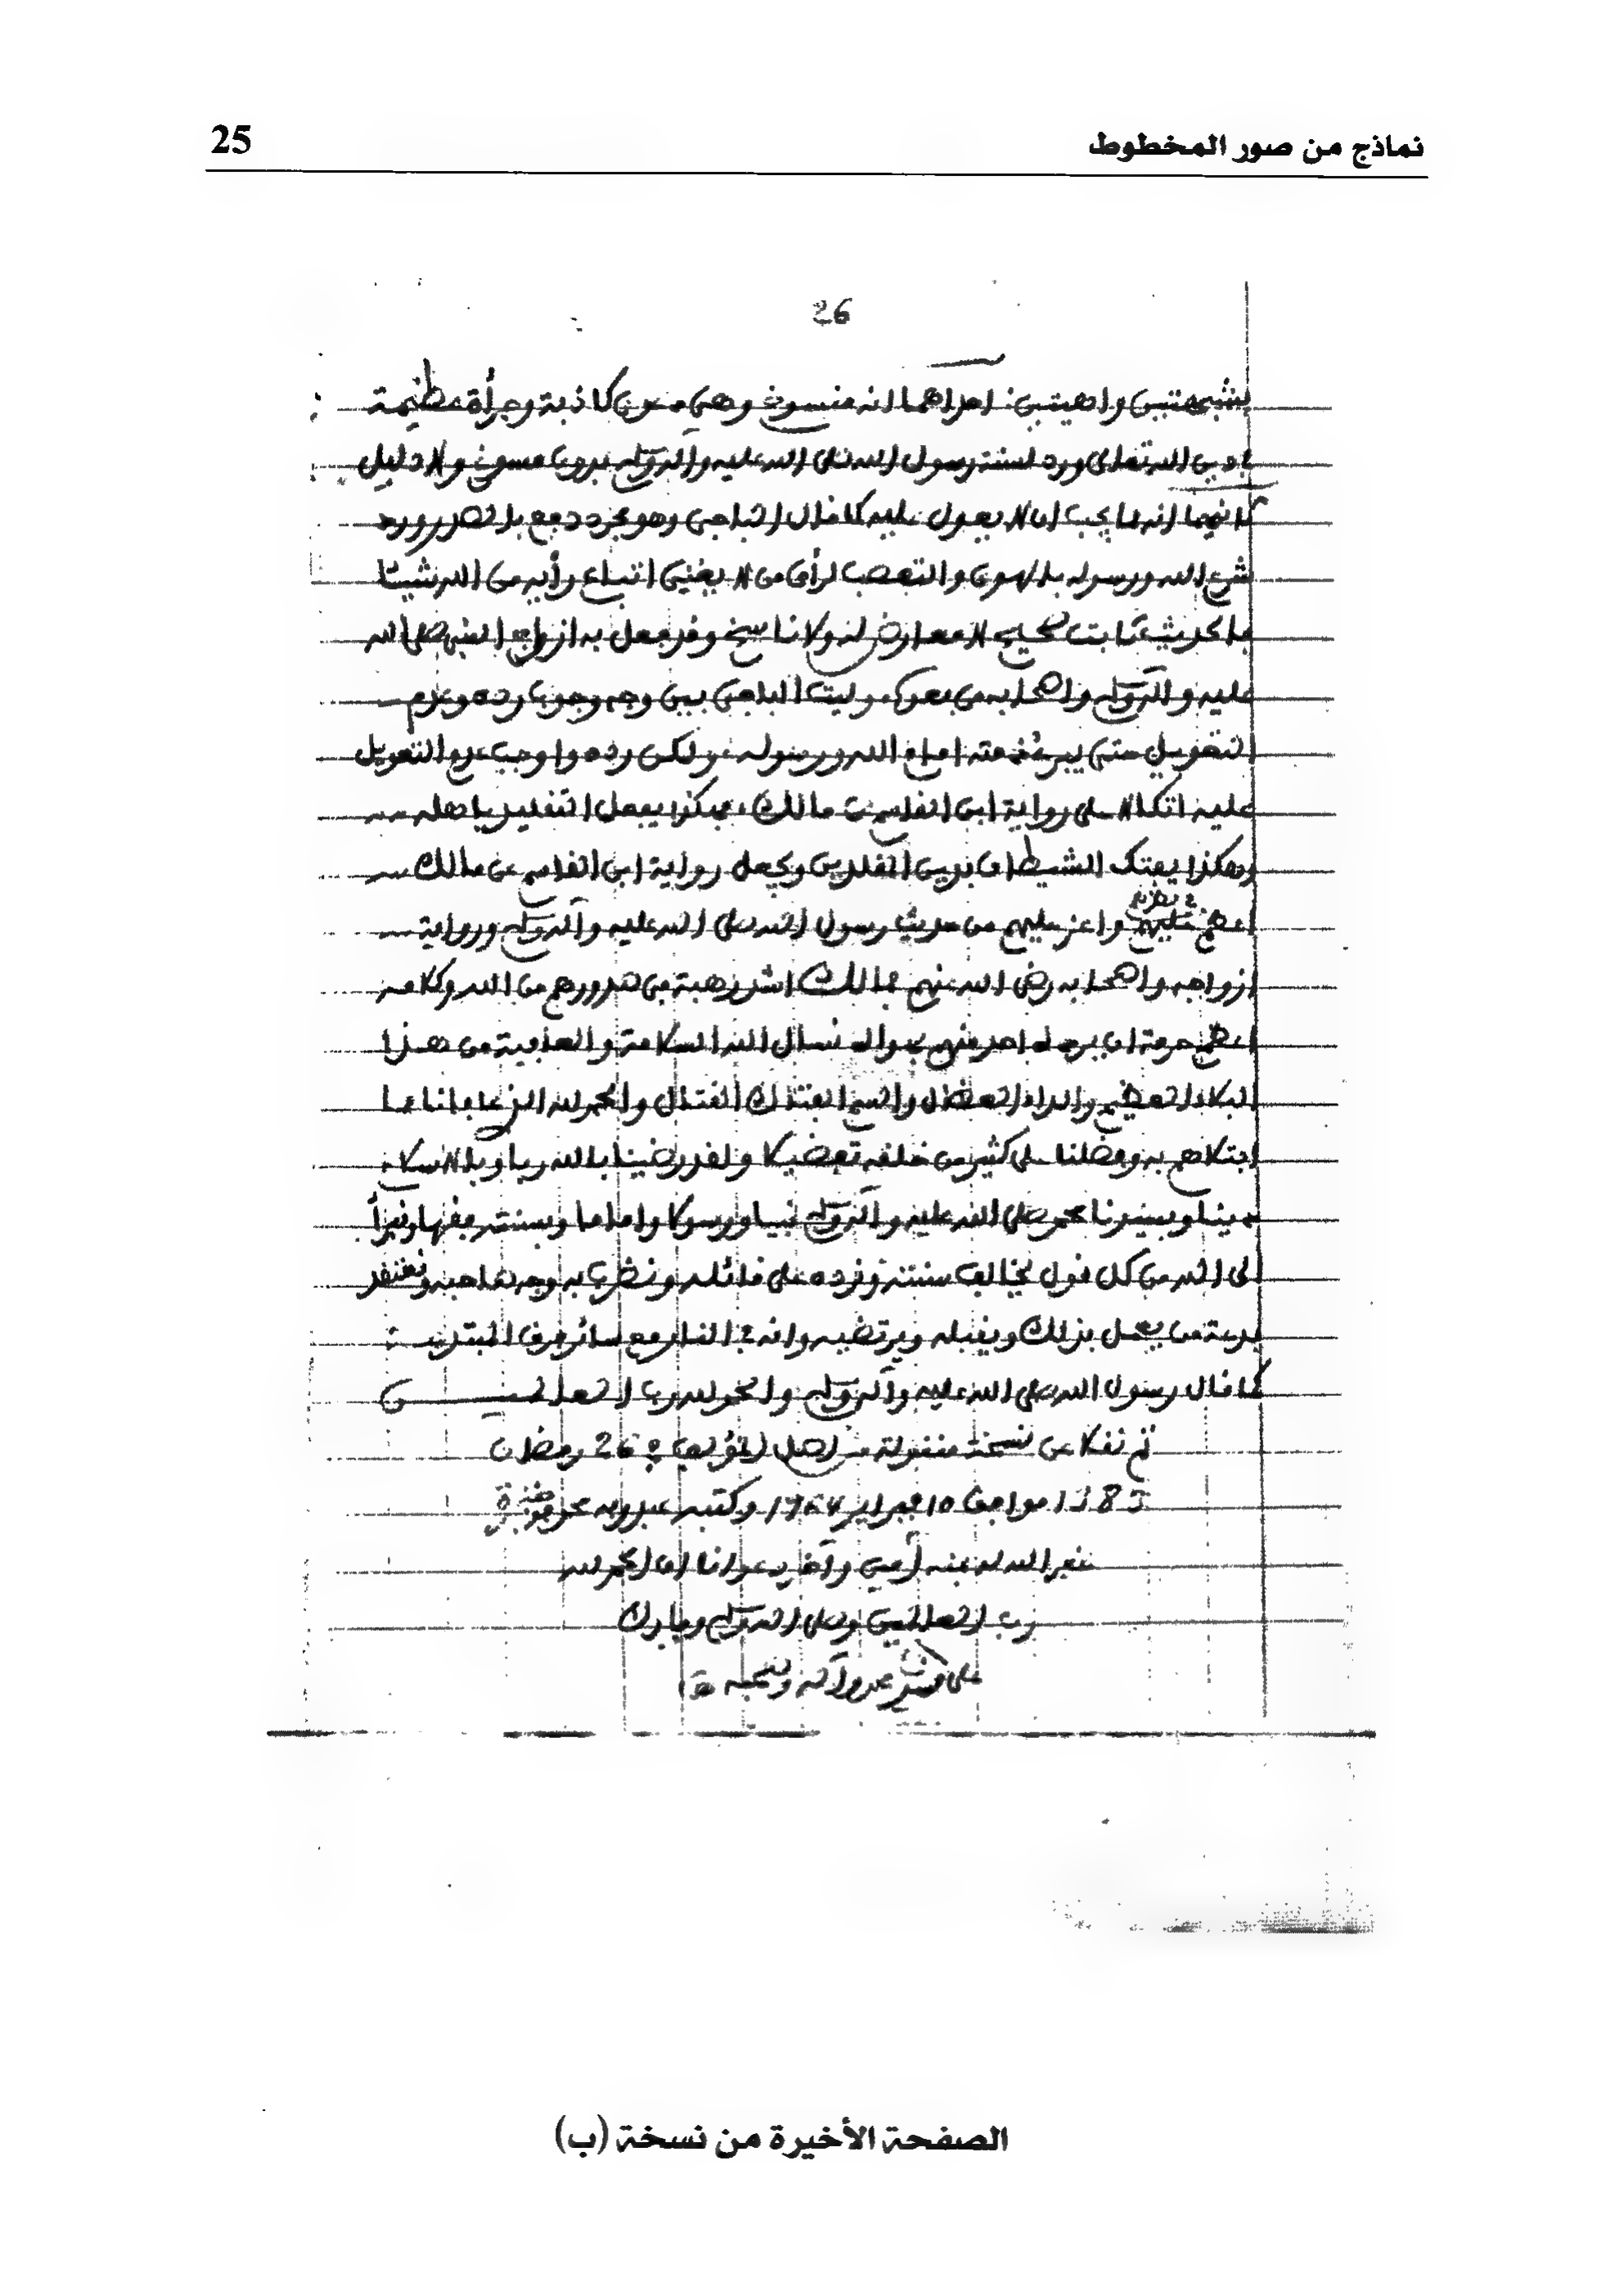 نماذج من صور المخطوط 25
26
بشبهتين واهيتين: احداهما انه منسوخ وهي دعوى كاذبة وجرأة عظيمة
بدين الله تعالى ورد لسنة رسول الله صلى الله عليه وآله وسلم بدون مسوغ ولا دليل
ثانيهما انه مما يجب ان لا يعول عليه كما قال الباجي وهو مجرد دفع بالصدر ورد
شرع الله ورسوله بالهوى والتعصب لرأي من لا يغني اتباع رأيه من الله شيئا
فالحديث ثابت صحيح لا معارض له ولا ناسخ وقد عمل به ازواج النبي صلى الله
عليه وآله وسلم واصحابه من بعده وليت الباجي بين وجه وجوب رده وعدم
التعويل حتى امام الله ورسوله ولكن رده واوجب عدم التعويل
عليه اتكالا على رواية ابن القاسم عن مالك، هكذا يفعل التقليد باهله
وهكذا يفتك الشيطان بدين المقلدين ويجعل رواية ابن القاسم عن مالك
اعظم عليهم واعز عليهم من حديث رسول الله صلى الله عليه وآله وسلم ورواية
ازواجه واصحابه رضي الله عنهم فمالك اشد رهبة في صدورهم من الله وكلامه
اعظم حرمة ان يرد احد منهم نسال الله السلامة والعافية من هذا
البلاء العظيم والداء العضال والسم الفتاك القتال والحمد لله الذي عافانا مما
ابتلاهم به وفضلنا على كثير من خلقه تفضيلا ولقد رضينا بالله ربا وبالاسلام
دينا وبسيدنا محمد صلى الله عليه وآله وسلم نبيا ورسولا واماما وبسنته فقها ونبرأ
الى الله من كل قول يخالف سنته ونرده على قائله ونضرب به وجه صاحبه ونعتقد
بدعة من يعمل بذلك ويقبله ويرتضيه وانه في النار مع سائر فرق المبتدعة
كما قال رسول الله صلى الله عليه وآله وسلم والحمد لله رب العالمين
تم نقلا عن نسخة منقولة من اصل المؤلف في 26 رمضان
138 موافق 10 فبراير 196 وكتبه عبد ربه محمد
غفر الله له بمنه آمين وآخر دعوانا ان الحمد لله
رب العالمين وصلى الله وسلم وبارك
على سيدنا محمد وآله وصحبه
الصفحة الأخيرة من نسخة (ب)